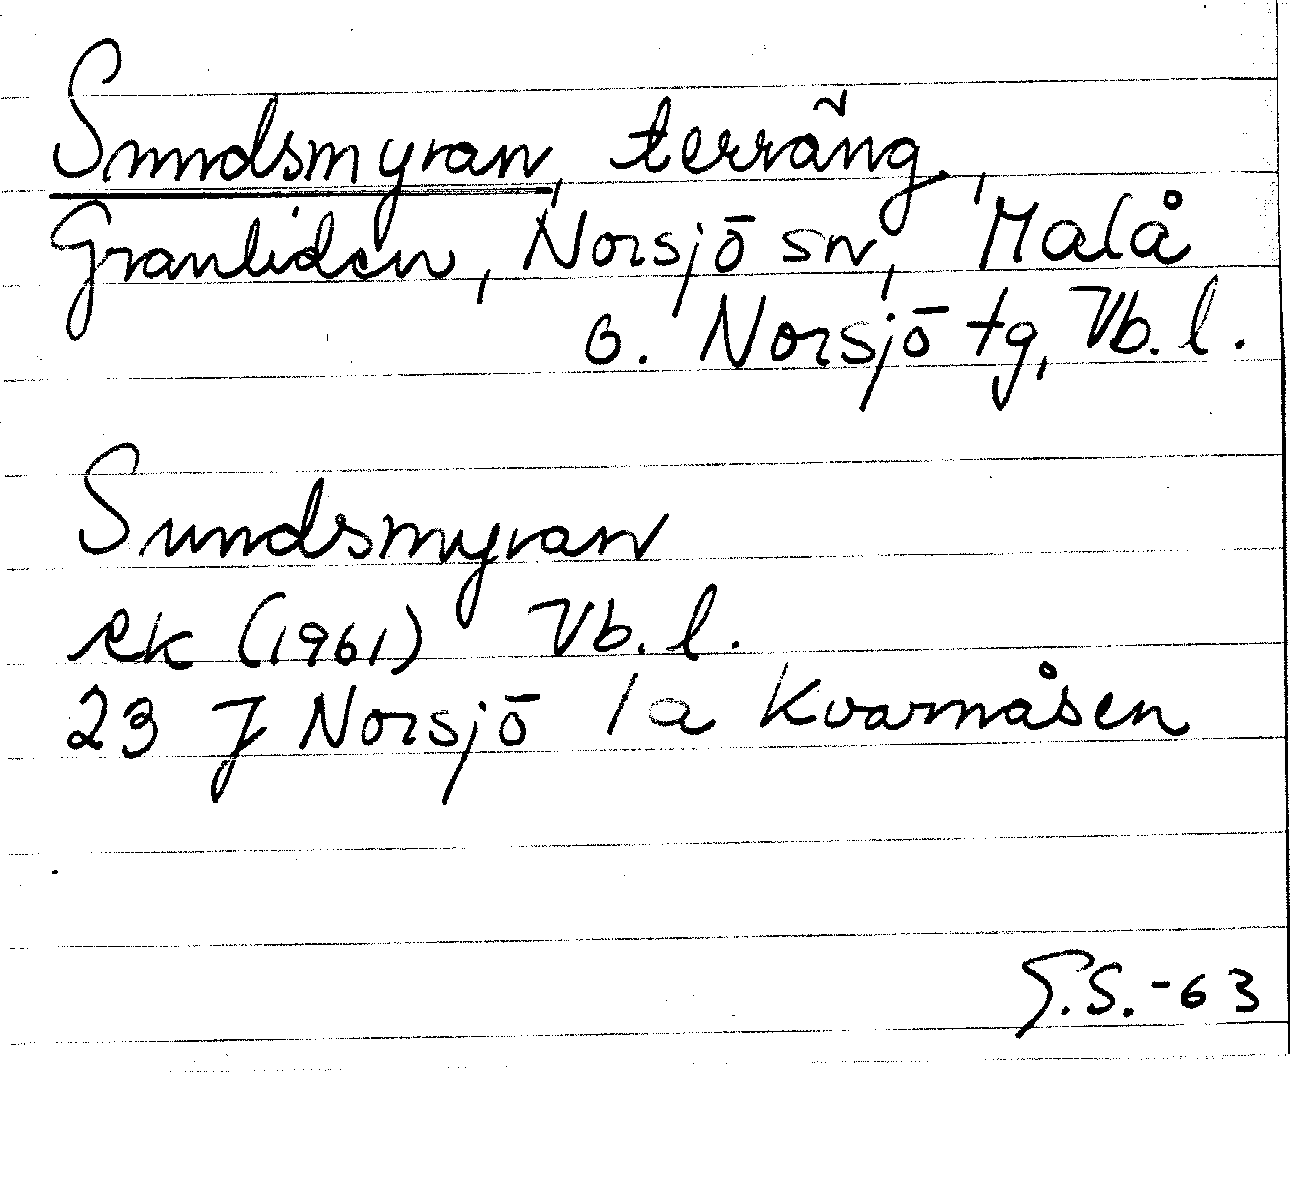 Sundsmyran, terräng,
Granliden, Norsjö sn, Malå
o. Norsjö tg, Vb. l.
Sundsmyran
ek (1961) Vb. l.
23 J Norsjö 1a Kvarnåsen
G.S.-63